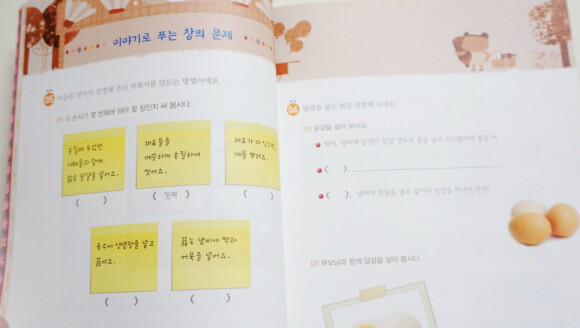 이야기로 푸는 창의 문제
05 다음은 엄마가 설명해 주신 떡볶이를 만드는 방법이에요.
(1) 각 순서가 몇 번째에 해야 할 일인지 써 봅시다.
손질해 두었던
야채들과 함께
삶은 달걀을 넣어요.
( )
재료들을
깨끗하게 손질하여
씻어요.
( 첫째 )
재료가 다 익으면
깨를 뿌려요.
( )
육수에 양념장을 넣고
끓여요.
( )
끓는 냄비에 떡과
어묵을 넣어요.
( )
06 달걀을 삶는 법을 설명해 보세요.
(1) 달걀을 삶아 보아요.
첫째, 냄비에 달걀이 잠길 정도로 물을 넣고 가스렌지에 불을 켜
( ),
( ), 냄비에 찬물을 넣고 삶아진 달걀을 꺼내면 완성!
(2) 부모님과 함께 달걀을 삶아 봅시다.